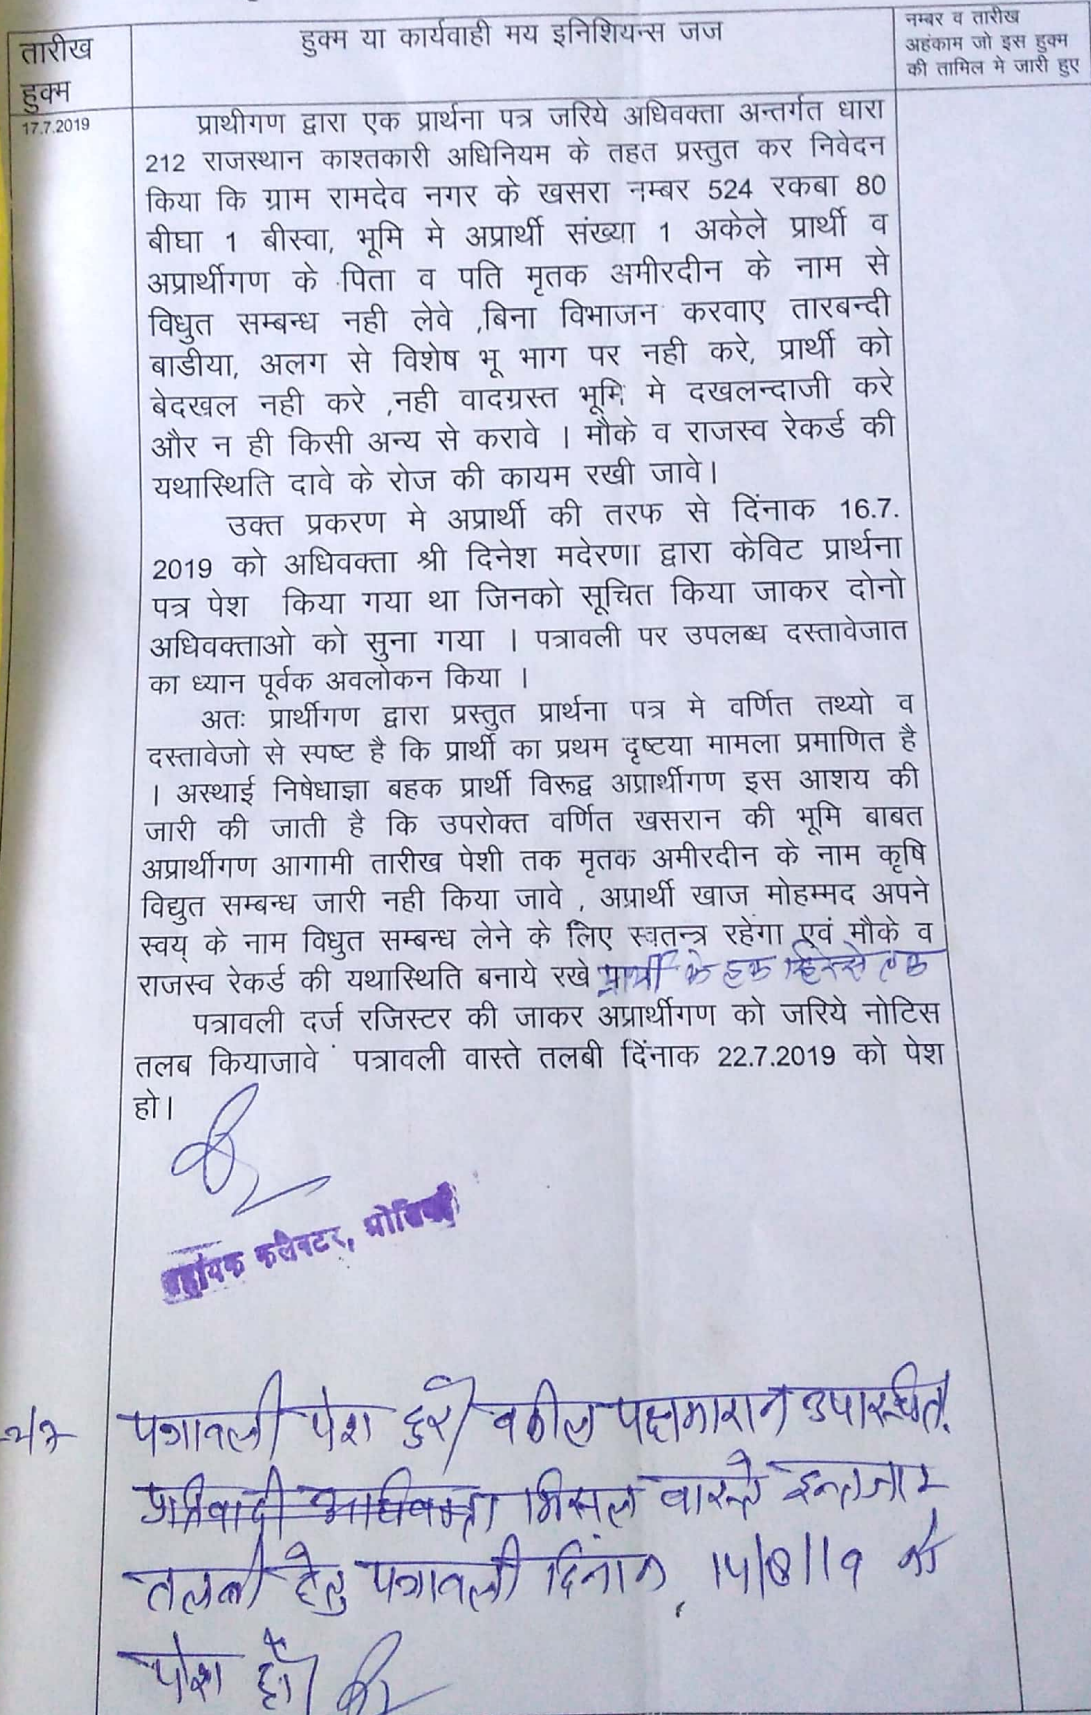 तारीख
हुक्म
हुक्म या कार्यवाही मय इनिशियन्स जज
नम्बर व तारीख
अहंकाम जो इस हुक्म
की तामिल मे जारी हुए
17.7.2019
प्राथीगण द्वारा एक प्रार्थना पत्र जरिये अधिवक्ता अन्तर्गत धारा
212 राजस्थान काश्तकारी अधिनियम के तहत प्रस्तुत कर निवेदन
किया कि ग्राम रामदेव नगर के खसरा नम्बर 524 रकबा 80
बीघा 1 बीस्वा, भूमि मे अप्रार्थी संख्या 1 अकेले प्रार्थी व
अप्रार्थीगण के पिता व पति मृतक अमीरदीन के नाम से
विधुत सम्बन्ध नही लेवे ,बिना विभाजन करवाए तारबन्दी
बाडीया, अलग से विशेष भू भाग पर नही करे, प्रार्थी को
बेदखल नही करे ,नही वादग्रस्त भूमि मे दखलन्दाजी करे
और न ही किसी अन्य से करावे । मौके व राजस्व रेकर्ड की
यथास्थिति दावे के रोज की कायम रखी जावे।
उक्त प्रकरण मे अप्रार्थी की तरफ से दिंनाक 16.7.
2019 को अधिवक्ता श्री दिनेश मदेरणा द्वारा केविट प्रार्थना
पत्र पेश किया गया था जिनको सूचित किया जाकर दोनो
अधिवक्ताओ को सुना गया । पत्रावली पर उपलब्ध दस्तावेजात
का ध्यान पूर्वक अवलोकन किया ।
अतः प्रार्थीगण द्वारा प्रस्तुत प्रार्थना पत्र मे वर्णित तथ्यो व
दस्तावेजो से स्पष्ट है कि प्रार्थी का प्रथम दृष्टया मामला प्रमाणित है
। अस्थाई निषेधाज्ञा बहक प्रार्थी विरूद्व अप्रार्थीगण इस आशय की
जारी की जाती है कि उपरोक्त वर्णित खसरान की भूमि बाबत
अप्रार्थीगण आगामी तारीख पेशी तक मृतक अमीरदीन के नाम कृषि
विद्युत सम्बन्ध जारी नही किया जावे , अप्रार्थी खाज मोहम्मद अपने
स्वय् के नाम विधुत सम्बन्ध लेने के लिए स्वतन्त्र रहेगा एवं मौके व
राजस्व रेकर्ड की यथास्थिति बनाये रखे प्रार्थी के हक हिस्से तक
पत्रावली दर्ज रजिस्टर की जाकर अप्रार्थीगण को जरिये नोटिस
तलब कियाजावे पत्रावली वास्ते तलबी दिंनाक 22.7.2019 को पेश
हो।
सहायक कलेक्टर,
पत्रावली पेश हुई। वकील पक्षकारान उपस्थित।
प्रतिवादी अधिवक्ता मिसल वास्ते इन्तजार
तलबी हेतु पत्रावली दिनांक 14/8/19 को
पेश हो।